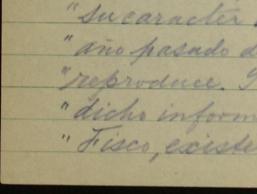 "su caracter
"año pasado d
"reproduce.
"dicho inform
"Fisco, existe